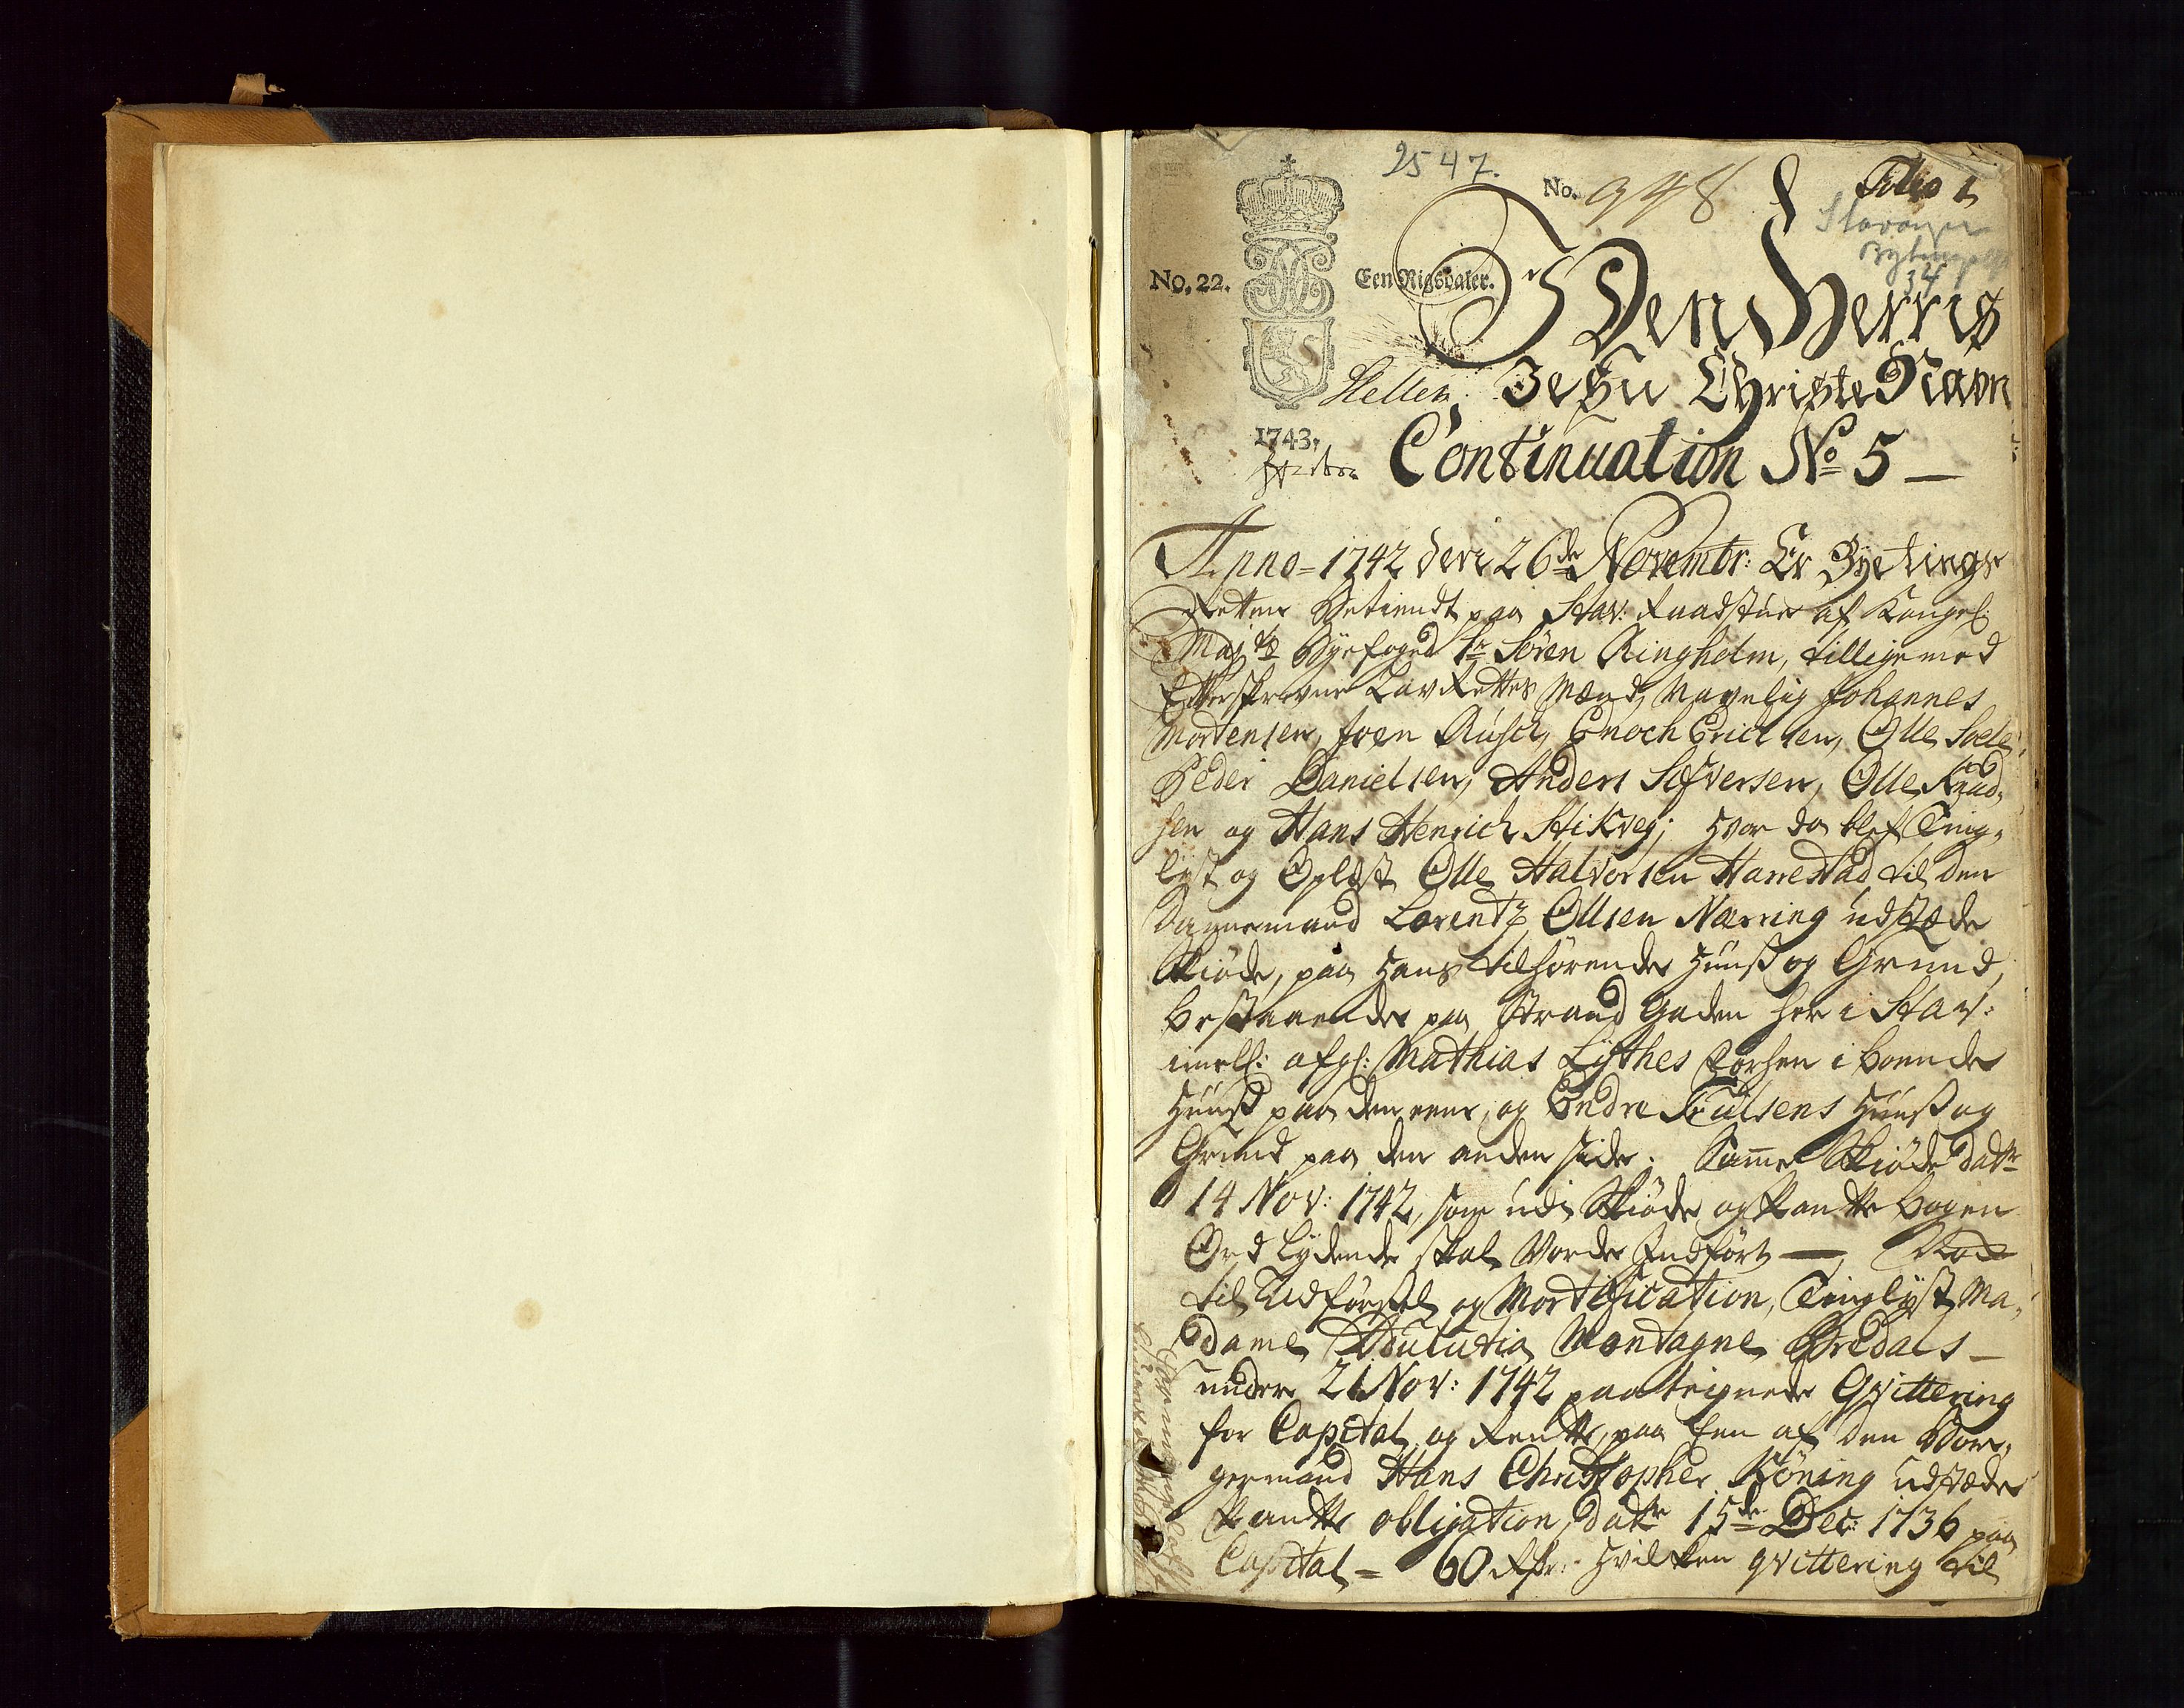 2547.
No. 948
Folio 1
Stavanger
34
No. 22.
Een Rigsdaler.
I Den Herris
JeSu Christe Navn
Hellen.
1743.
Continuation No 5 —
Anno = 1742 den 26de Novembr: Er Bye tings
Retten Betiendt paa Stav: Raadstue af Kongel:
Maj ts Byefoged Sr Sören Ringholm, tilligemed
Efterskrevne Lav Rettes Mænd, Navnlig Johannes
Mortensen, Joen Rusch, Enoch Erichsen, Olle Soele,
Peder Danielsen, Anders Sifversen, Olle Knud,
sen og Hans Henrich Stikveg; hvor da blef Ting,
lyst og Oplæst Olle Halvorsen Hanestad til den
Dannemand Lorentz Ollsen Nærring udstæde
Skiöde, paa hans tilhörende Huus og Grund,
bestaaende paa Strand Gaden her i Stav:
imell: afgl: Mathias Lythes Torsen i boende
Huus paa den eene, og Endre Truelsens Huus og
Grund paa den anden side. Samme Skiöde datr
14 Nov: 1742, som udi Skiöde og Pante bogen
Ord lydende skal Vorde Indfört —
til Udförsel og Mortification, Tinglyst Ma,
dame Montagne Bredals —
under 21 Nov: 1742 paateignede Qvittering
for Capital og Rente, paa Een af den Bor,
germand Hans Christopher Köning udstæde
Pante obligation, datr 15de Dec: 1736 paa
Capital = 60 Rdr: hvilken qvittering til